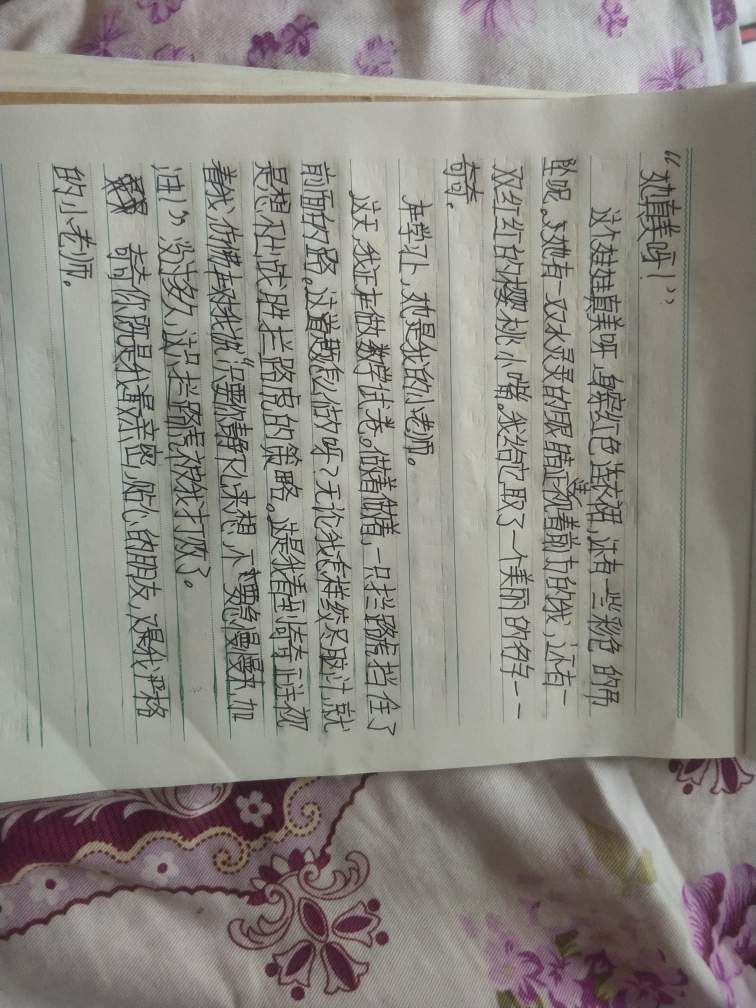 “她真美呀!”
这个娃娃真美呀,海滨红色连衣裙,还有一些彩色的吊
坠呢。她有一双水灵灵的眼睛正视着前方的我,还有一
双红红的樱桃小嘴。我给它取了一个美丽的名字——
奇奇。
在学习上,她是我的小老师。
这天,我正在做数学试卷。做着做着,一只拦路虎挡住了
前面的路。这道题怎么做呀?无论我怎样绞尽脑汁,就
是想不出战胜拦路虎的策略。这是我看到奇奇正注视
着我,仿佛在对我说“只要你静下心来想,不要急慢慢来,加
油!”没过多久,这只拦路虎被我打败了。
奇奇你既是我最亲密,贴心的朋友,又是我严格
的小老师。